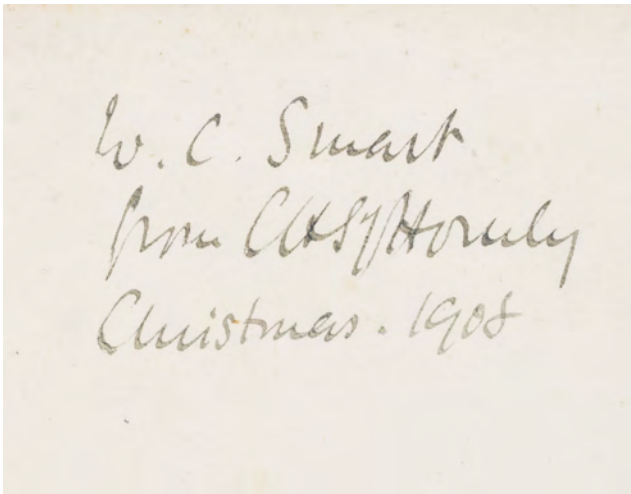 W. C. Smart
from CHStJHornby
Christmas. 1908